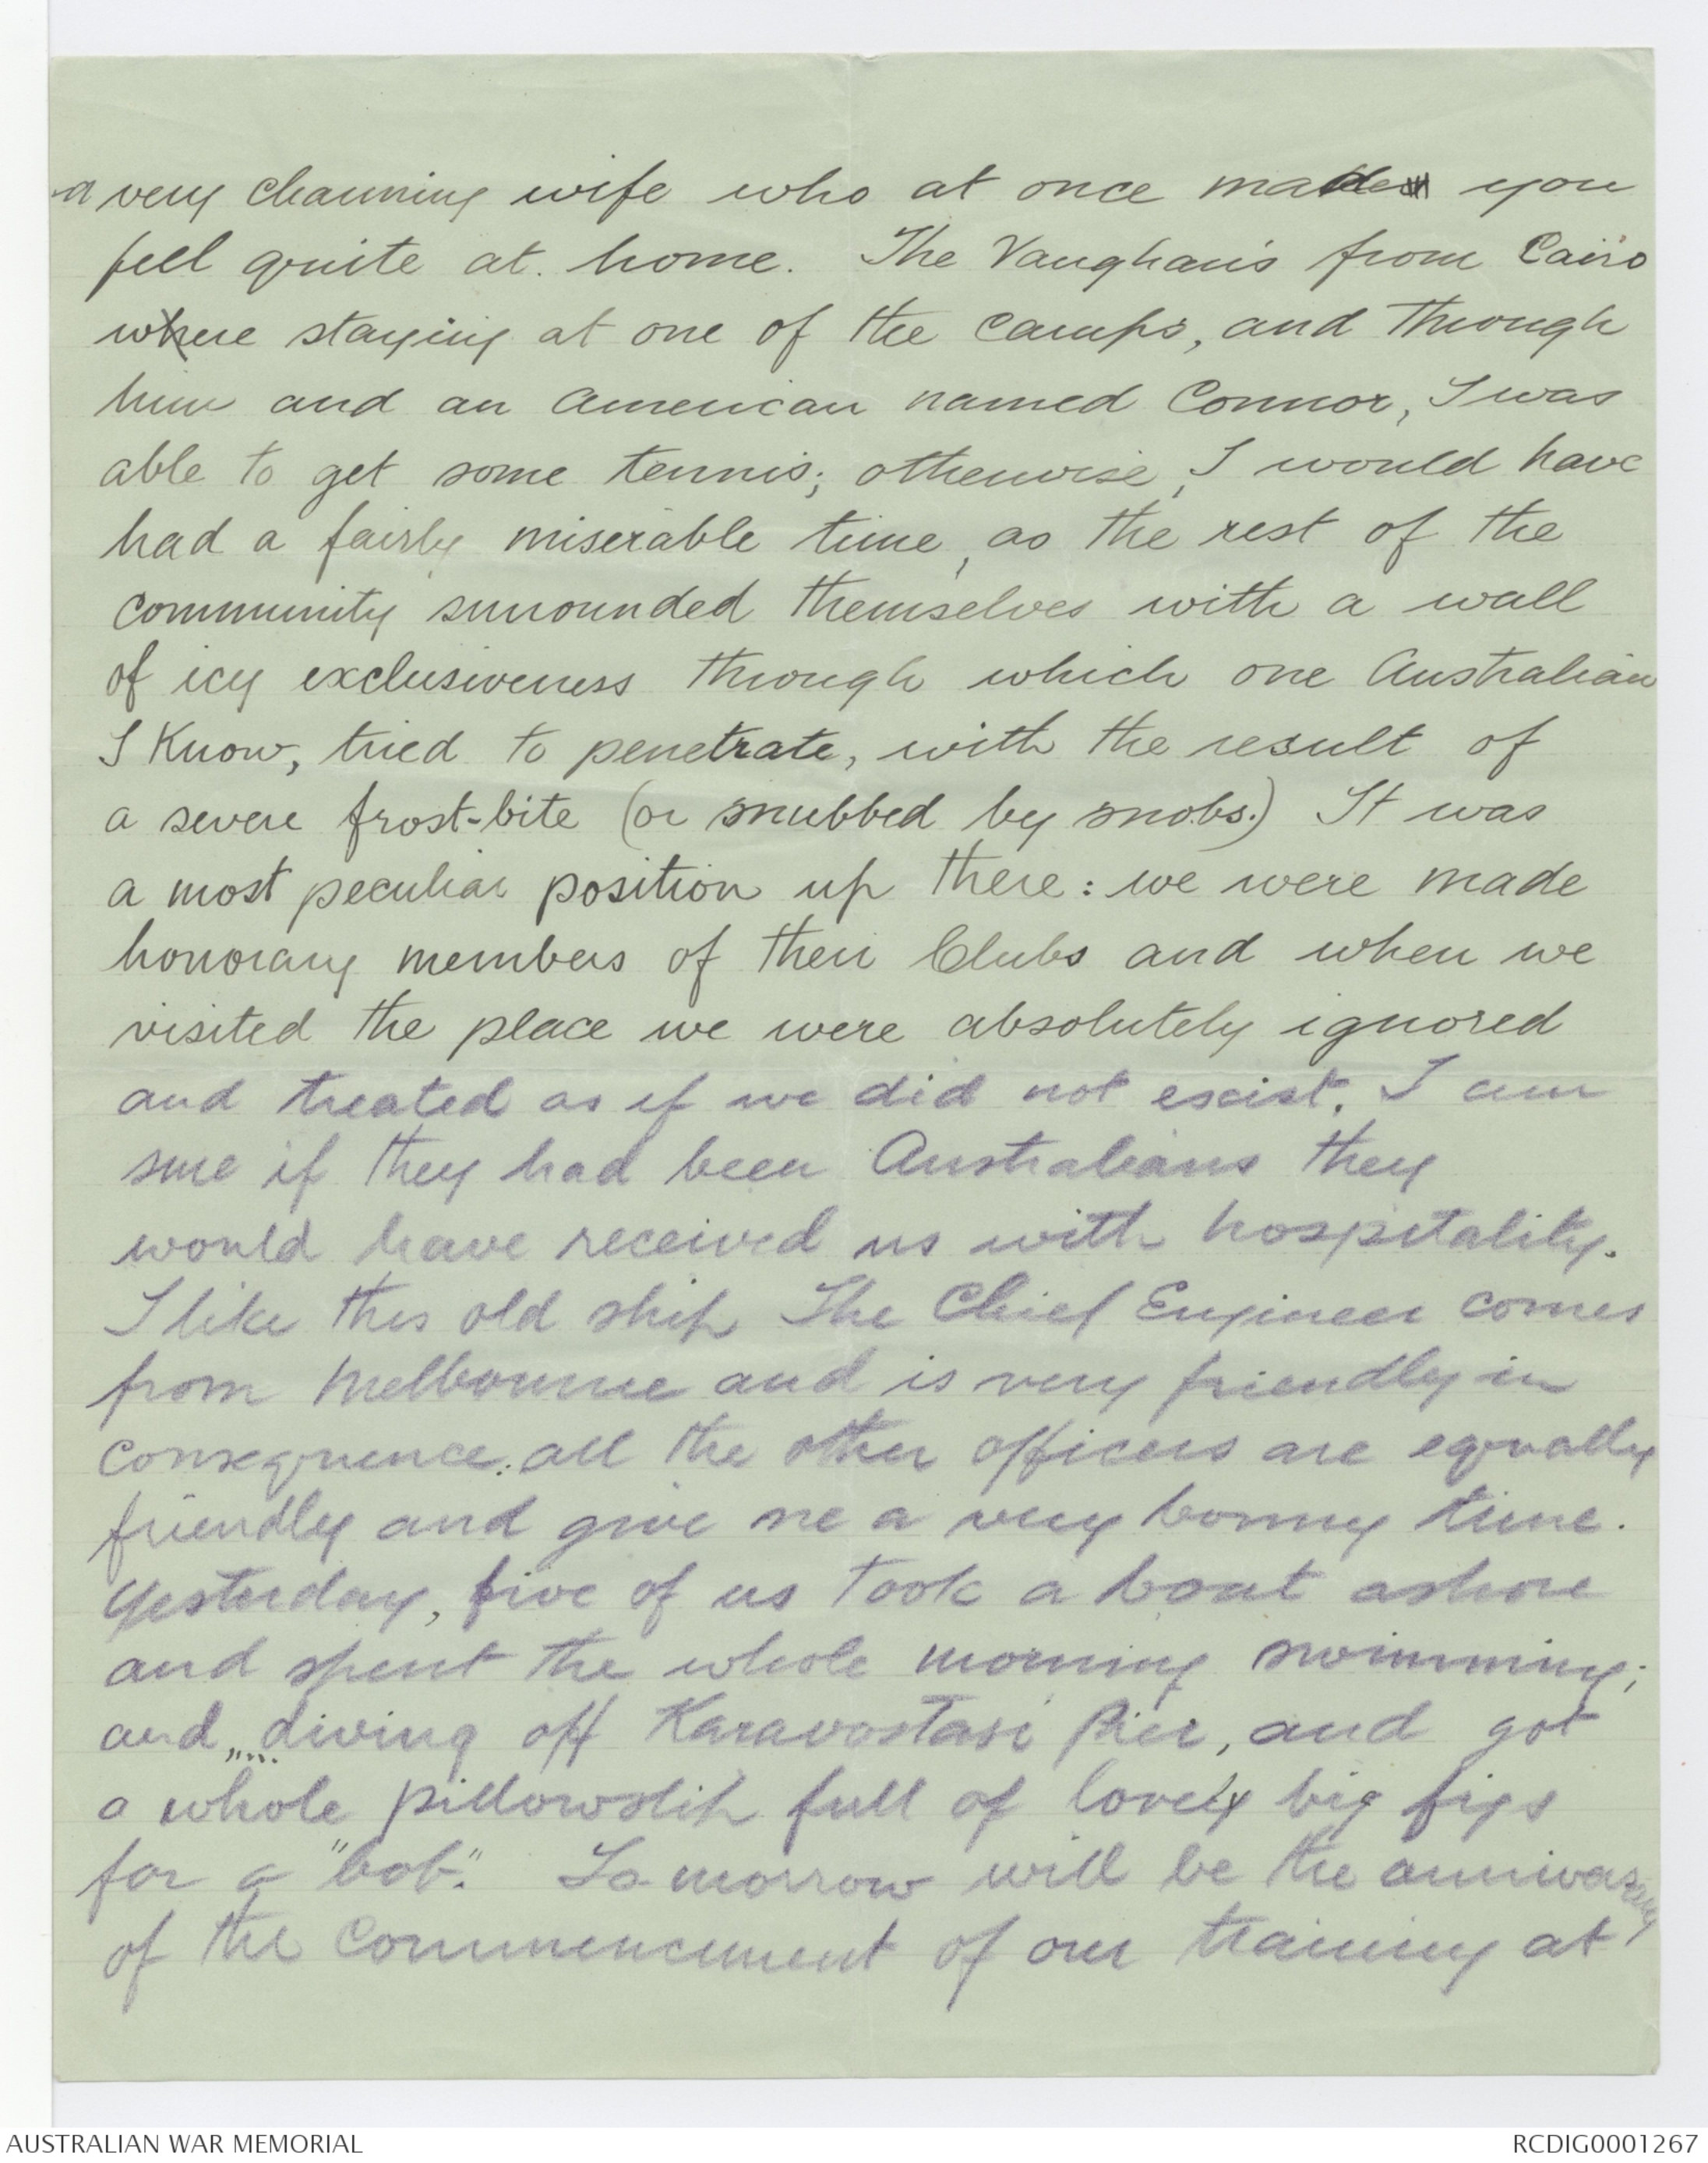 a very charming wife who at once made you
feel quite at. home. The Vaughan's from Cairo
were staying at one of the camps, and through
him and an American named Connor, I was
able to get some tennis; otherwise, I would have
had a fairly miserable time, as the rest of the
community surrounded themselves with a wall
of icy exclusiveness through which one Australian
I know, tried to penetrate, with the result of
a severe frost-bite (or snubbed by snobs.) It was
a most peculiar position up there: we were made
honorary members of their Clubs and when we
visited the place we were absolutely ignored
and treated as if we did not exist. I am
sure if they had been Australians they
would have received us with hospitality.
I like this old ship The Chief Engineer comes
from Melbourne and is very friendly in
consequence: all the other officers are equally
friendly and give me a very bonny time.
Yesterday, five of us took a boat ashore
and spent the whole morning swimming;
and diving off Karavostasi Pier, and got
a whole pillowslip full of lovely big figs
for a "bob". To-morrow will be the anniversary
of the commencement of our training at
AUSTRALIAN WAR MEMORIAL
RCDIG0001267